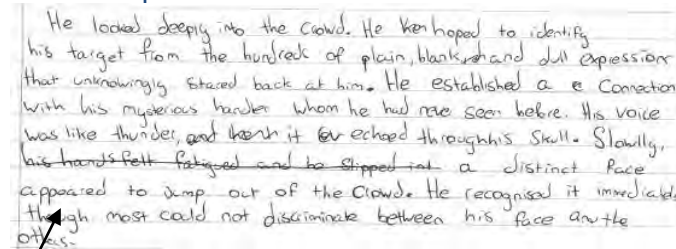 He looked deeply into the Crowd. He hoped to identify
his target from the hundreds of plain, blank and dull expression
that unknowingly stared back at him. He established a Connection
with his mysterious handler whom he had never seen before. His voice
was like thunder, and it echoed through his Skull. Slowlly,
his hands felt fatigued and he slipped int a distinct face
appeared to jump out of the Crowd. He recognised it immediately
though most could not discriminate between his face and the
others.